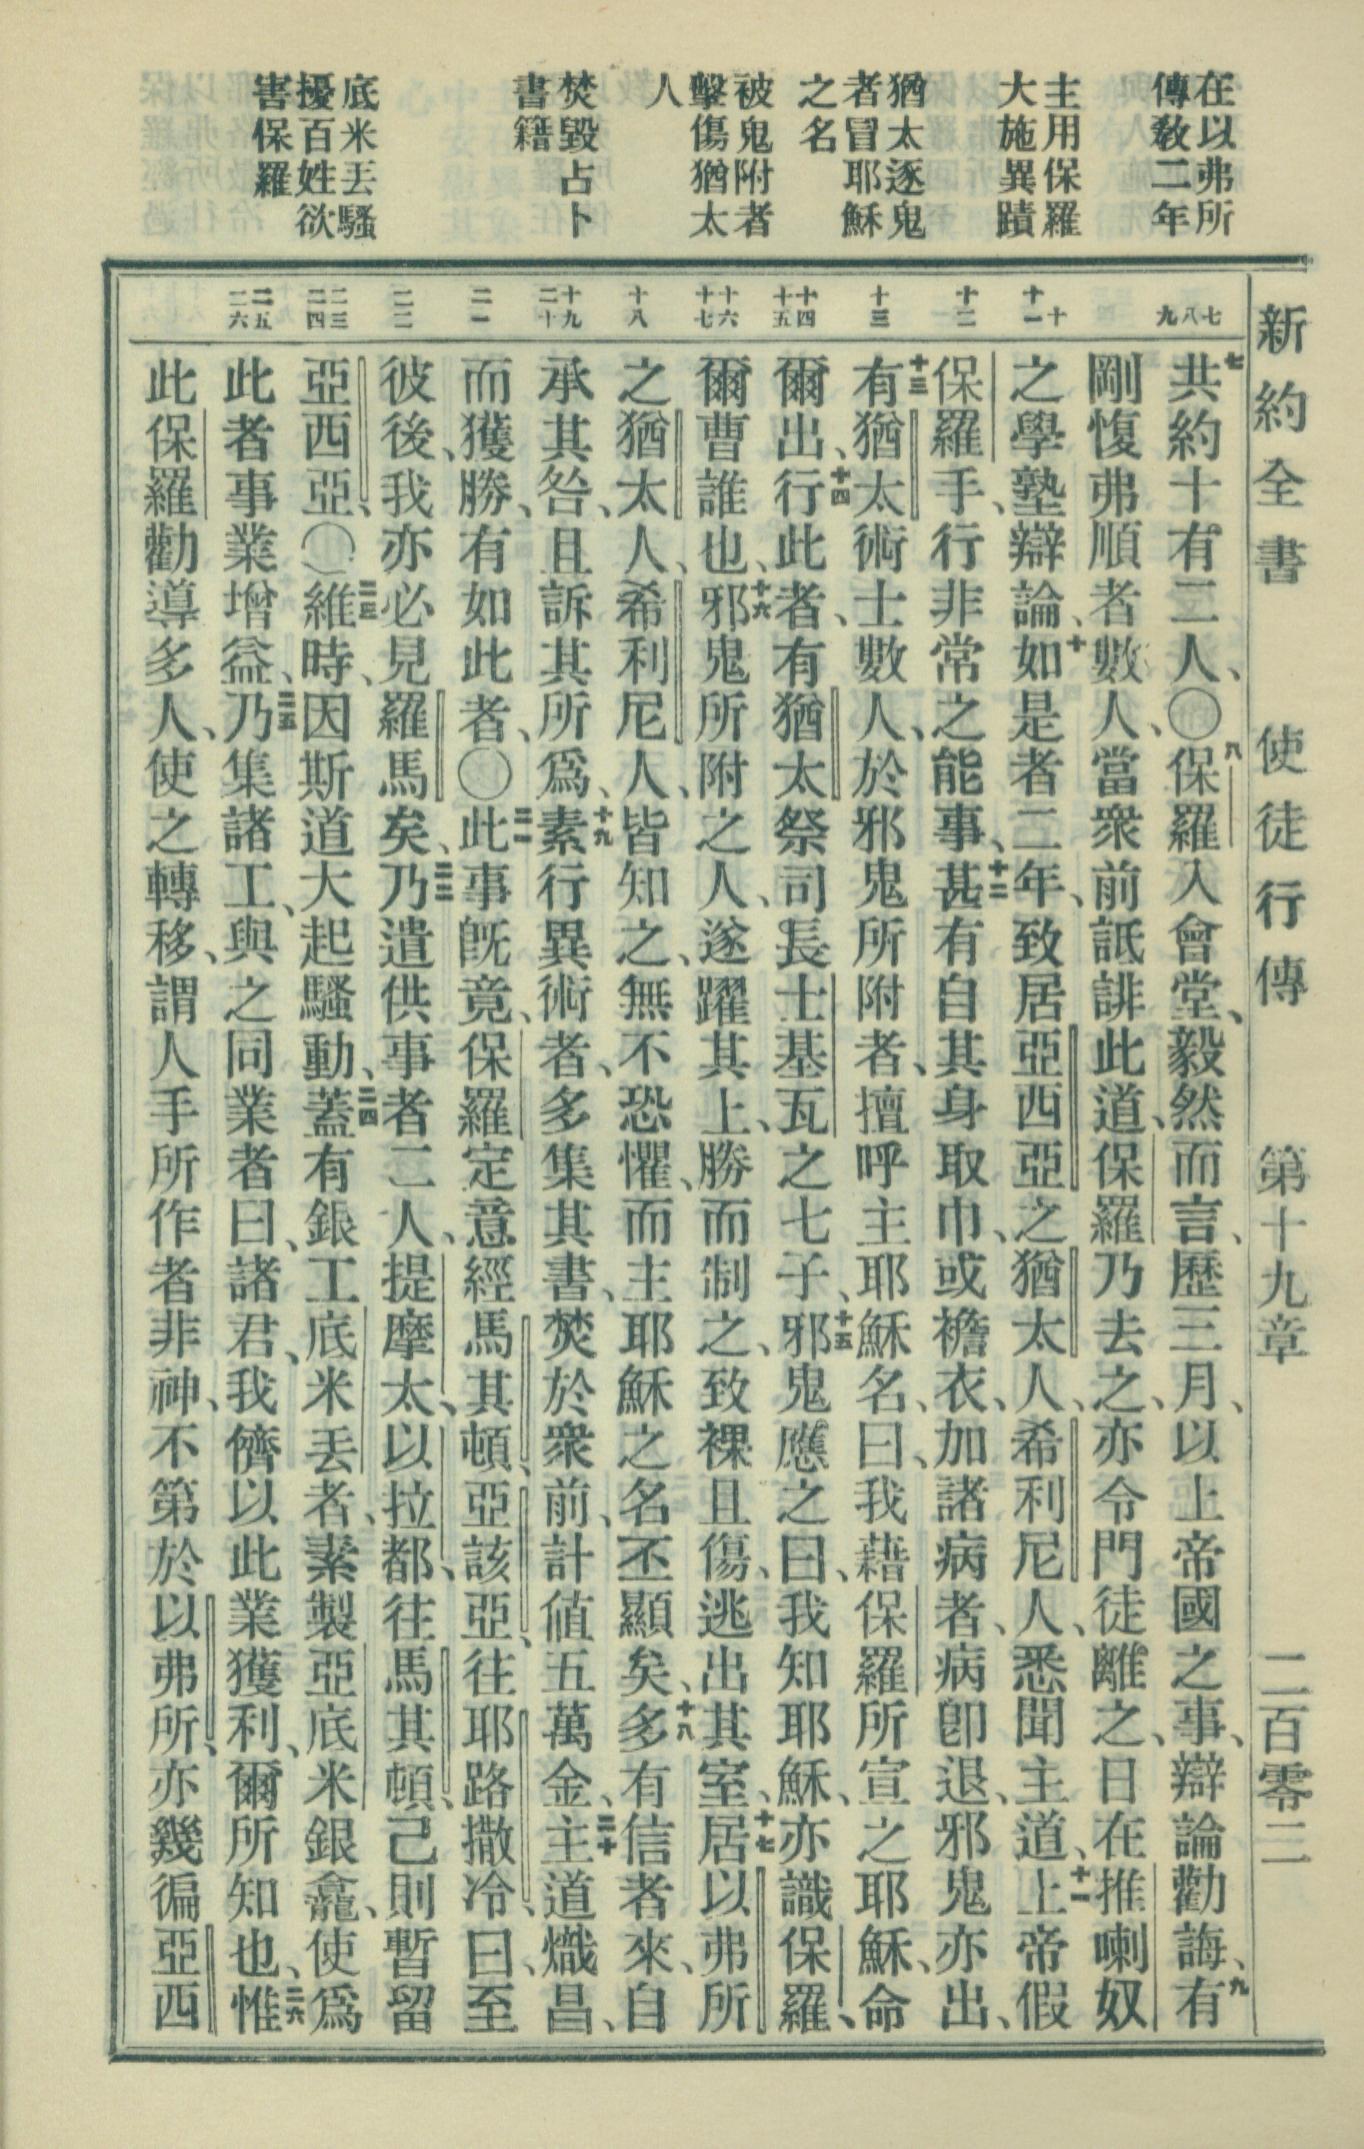 新約全書 使徒行傳 第十九章 二百零二
在以弗所
傳敎二年
主用保羅
大施異蹟
猶太逐鬼
者冒耶穌
之名
被鬼附者
擊傷猶太
人
焚毀占卜
書籍
底米丟騷
擾百姓欲
害保羅
七 八 九
十 十一
十二
十三
十四 十五
十六 十七
十八
十九 二十
二一
二二
二三 二四
二五 二六
七共約十有二人、〇八保羅入會堂、毅然而言、歷三月、以上帝國之事、辯論勸誨、九有
剛愎弗順者數人、當衆前詆誹此道、保羅乃去之、亦令門徒離之、日在推喇奴
之學塾辯論、十如是者二年、致居亞西亞之猶太人、希利尼人、悉聞主道、十一上帝假
保羅手、行非常之能事、十二甚有自其身取巾、或襜衣、加諸病者、病卽退、邪鬼亦出、
十三有猶太術士數人、於邪鬼所附者、擅呼主耶穌名、曰、我藉保羅所宣之耶穌、命
爾出、十四行此者、有猶太祭司長士基瓦之七子、十五邪鬼應之曰、我知耶穌、亦識保羅、
爾曹誰也、十六邪鬼所附之人、遂躍其上、勝而制之、致裸且傷、逃出其室、十七居以弗所
之猶太人、希利尼人、皆知之、無不恐懼、而主耶穌之名丕顯矣、十八多有信者來、自
承其咎、且訴其所爲、十九素行異術者、多集其書、焚於衆前、計値五萬金、二十主道熾昌、
而獲勝、有如此者、〇二一此事旣竟、保羅定意經馬其頓、亞該亞、往耶路撒冷、曰、至
彼後、我亦必見羅馬矣、二二乃遣供事者二人、提摩太、以拉都、往馬其頓、己則暫留
亞西亞、〇二三維時、因斯道大起騷動、二四蓋有銀工底米丟者、素製亞底米銀龕、使爲
此者事業增益、二五乃集諸工、與之同業者曰、諸君、我儕以此業獲利、爾所知也、二六惟
此保羅勸導多人、使之轉移、謂人手所作者非神、不第於以弗所、亦幾徧亞西